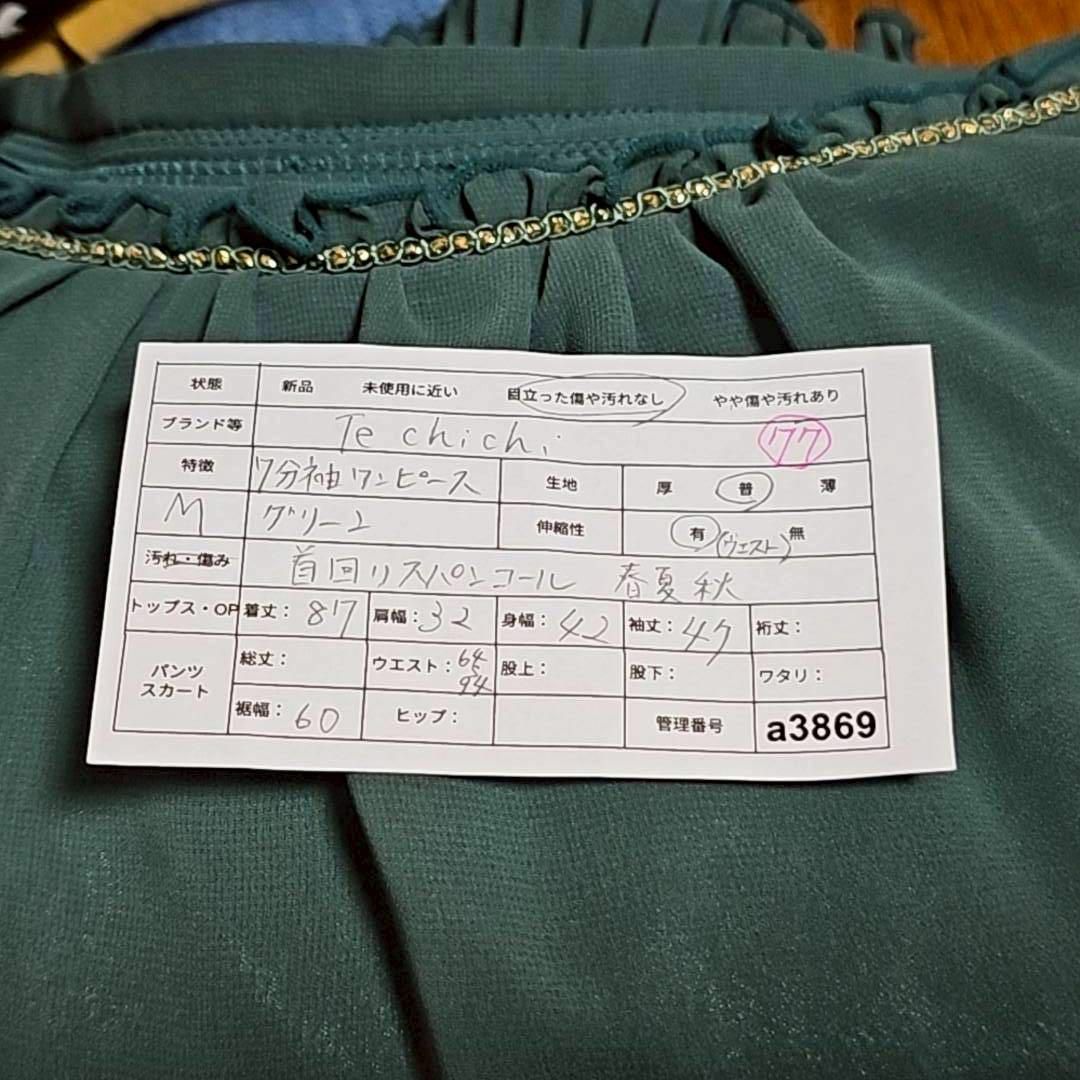 状態 新品 未使用に近い 目立った傷や汚れなし やや傷や汚れあり
ブランド等 Te chichi 77
特徴 7分袖ワンピース 生地 厚 普 薄
M グリーン 伸縮性 有 (ウエスト) 無
汚れ・傷み 首回りスパンコール 春夏秋
トップス・OP 着丈: 87 肩幅: 32 身幅: 42 袖丈: 47 裄丈:
パンツ スカート 総丈: ウエスト: 64 94 股上: 股下: ワタリ:
裾幅: 60 ヒップ: 管理番号 a3869